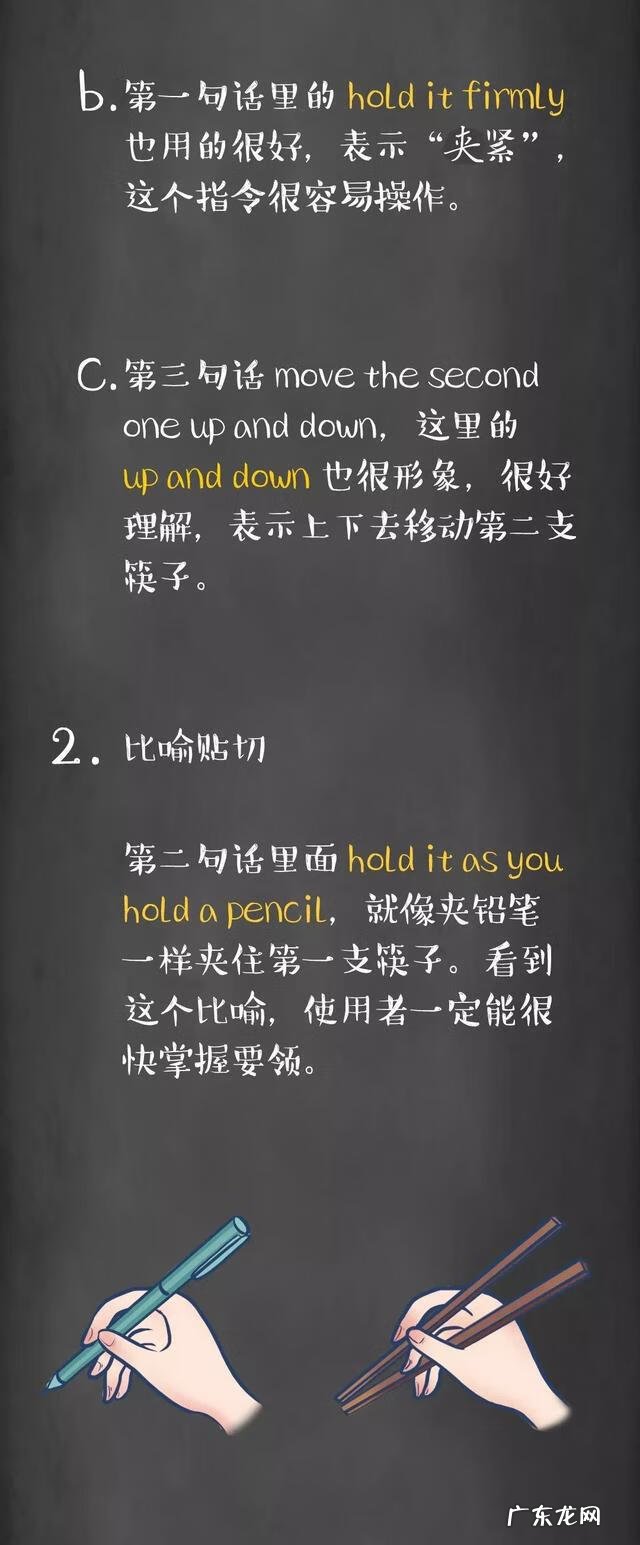 b.第一句话里的 hold it firmly
也用的很好，表示“夹紧”，
这个指令很容易操作。
c.第三句话 move the second
one up and down，这里的
up and down 也很形象，很好
理解，表示上下去移动第二支
筷子。
2. 比喻贴切
第二句话里面 hold it as you
hold a pencil，就像夹铅笔
一样夹住第一支筷子。看到
这个比喻，使用者一定能很
快掌握要领。
广东龙网